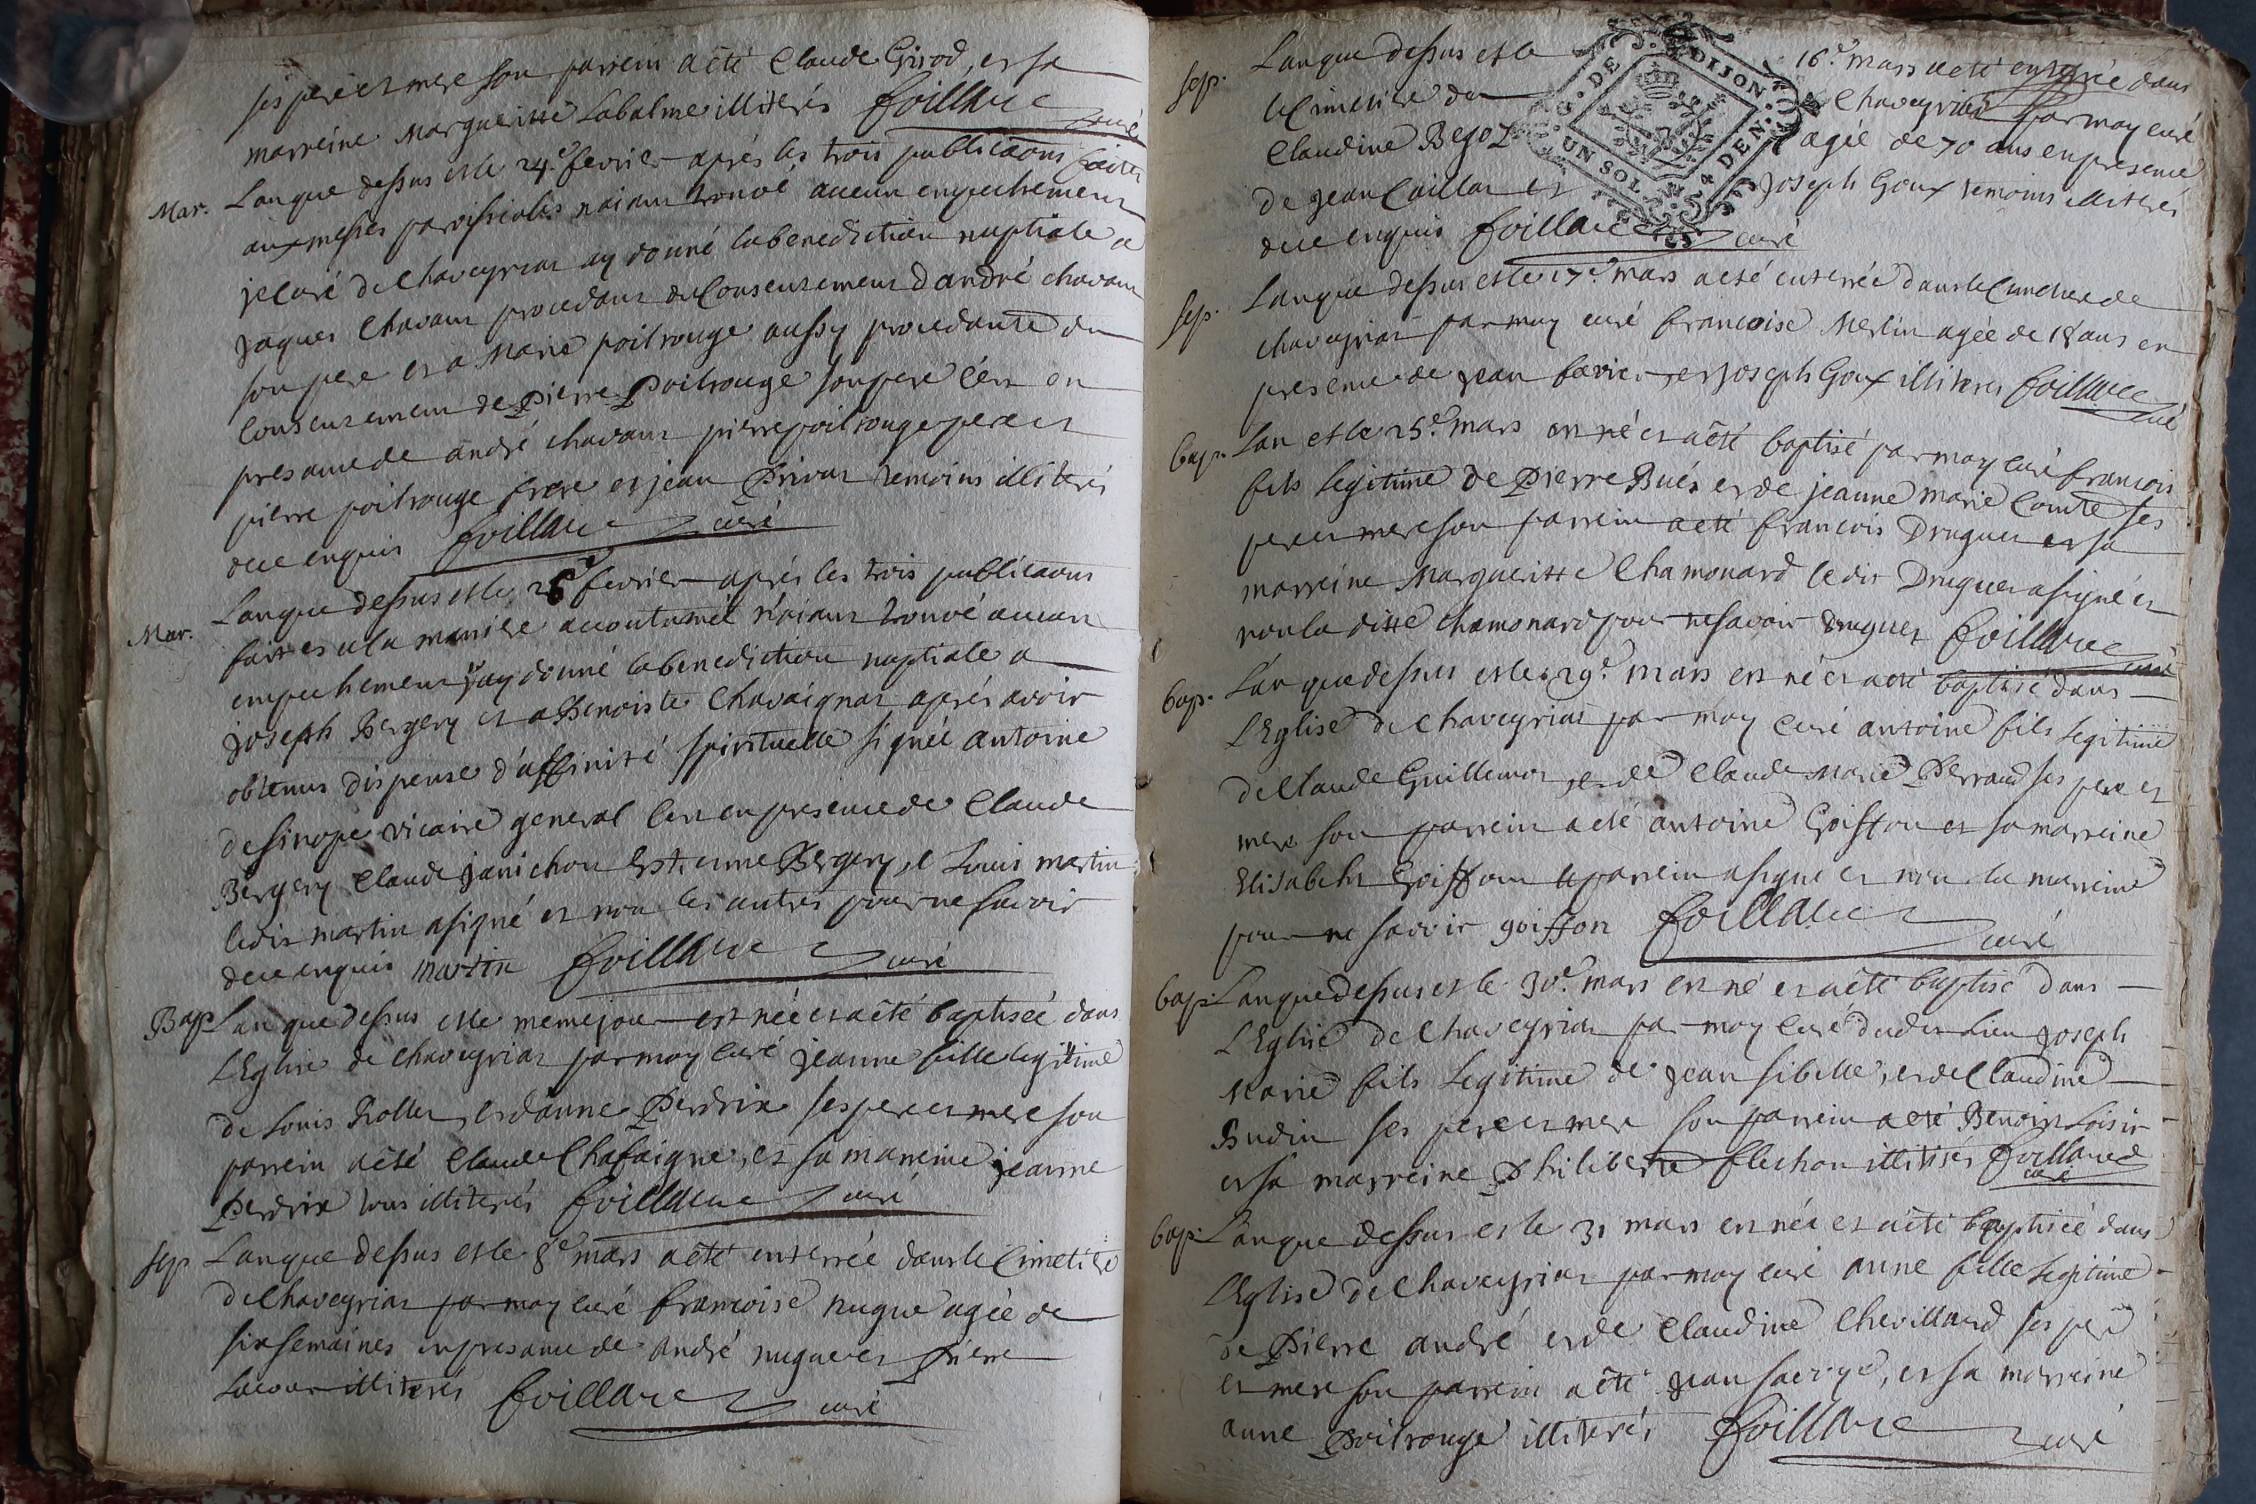 ses pere et mere son parrein a êté Claude Girod, et sa
marreine Margueritte Labalme illiterés foillare curé
Mar. L'an que dessus et le 24e. fevrier aprés les trois publicaons faites
aux messes paroissiales n'aiant trouvé aucun empechement
je curé de chaveyriat ay donné la benediction nuptiale a
jaques Chavant procedant du Consentement d'andré chavant
son pere et a Marie poitrouge aussy procedante du
Consentement de Pierre Poitrouge son pere C'est en
presance de andré chavant pierre poitrouge pere et
pierre poitrouge frere et jean Privat temoins illiterés
de ce enquis foillare curé
Mar. L'an que dessus et le 26e fevrier aprés les trois publicaons
faittes a la maniere accoutumée n'aiant trouvé aucun
empechement j'ay donné la benediction nuptiale a
joseph Bergery et a Benoiste Chavaignat aprés avoir
obtenus dispense d'affinité spirituelle signée antoine
de sinope vicaire general C'est en presence de Claude
Bergery Claude janichon Estienne Bergery, et Louis martin
ledit martin a signé et non les autres pour ne savoir
de ce enquis martin foillare curé
Bap L'an que dessus et le meme jour est née et a êté baptisée dans
L'Eglise de chaveyriat par moy curé jeanne fille legitime
de Louis Rollet, et d'anne Perdrix ses pere et mere son
parrein a êté Claude Chafaigne, et sa marreine jeanne
Perdrix tous illiterés foillare curé
sep L'an que dessus et le 8e mars a êté enterrée dans le Cimetiere
de Chaveyriat par moy curé francoise nugue agée de
six semaines en presance de andré nugue et pierre
Lacour illiterés foillare curé
sep. L'an que dessus et le 16e. mars a eté enterrée dans
le Cimetiere de Chaveyriat par moy curé
Claudine Begot agée de 70 ans en presence
de jean Caillat et joseph Goux temoins illiterés
de ce enquis foillare curé
G. DE DIJON. UN SOL. 4 DEN.
sep. L'an que dessus et le 17e mars a eté enterrée dans le Cimetiere de
chaveyriat par moy curé francoise Merlin agée de 18 ans en
presence de jean favier et joseph Goux illiteres foillare curé
bap. L'an et le 25e. mars est né et a êté baptisé par moy curé francois
fils legitime de Pierre Buet et de jeanne marie Comte ses
pere et mere son parrein a eté francois Druguet et sa
marreine Margueritte Chamonard ledit Druguet a signé et
non la ditte chamonard pour ne savoir druguet foillare curé
bap. L'an que dessus et le 29e. mars est né et a eté baptisé dans
L'Eglise de chaveyriat par moy curé antoine fils legitime
de Claude Guillemot, et de Claude Marie Perraud ses pere et
mere son parrein a eté antoine Goiffon et sa marreine
Elisabeht Goiffon le parrein a signé et non la marreine
pour ne savoir goiffon foillare curé
bap. L'an que dessus et le 30e. mars est né et a êté baptisé dans
L'Eglise de chaveyriat par moy curé dudit Lieu joseph
Marie fils legitime de jean sibelle, et de Claudine
Budin ses pere et mere son parrein a eté Benoit Loisir
et sa marreine Philiberte flechon illiterés foillare curé
bap. L'an que dessus et le 31 mars est née et a êté baptisée dans
L'Eglise de Chaveyriat par moy curé anne fille legitime
de Pierre andré et de Claudine Chevillard ses pere
et mere son parrein a êté jean savoye, et sa marreine
anne Poitrouge illiterés foillare curé